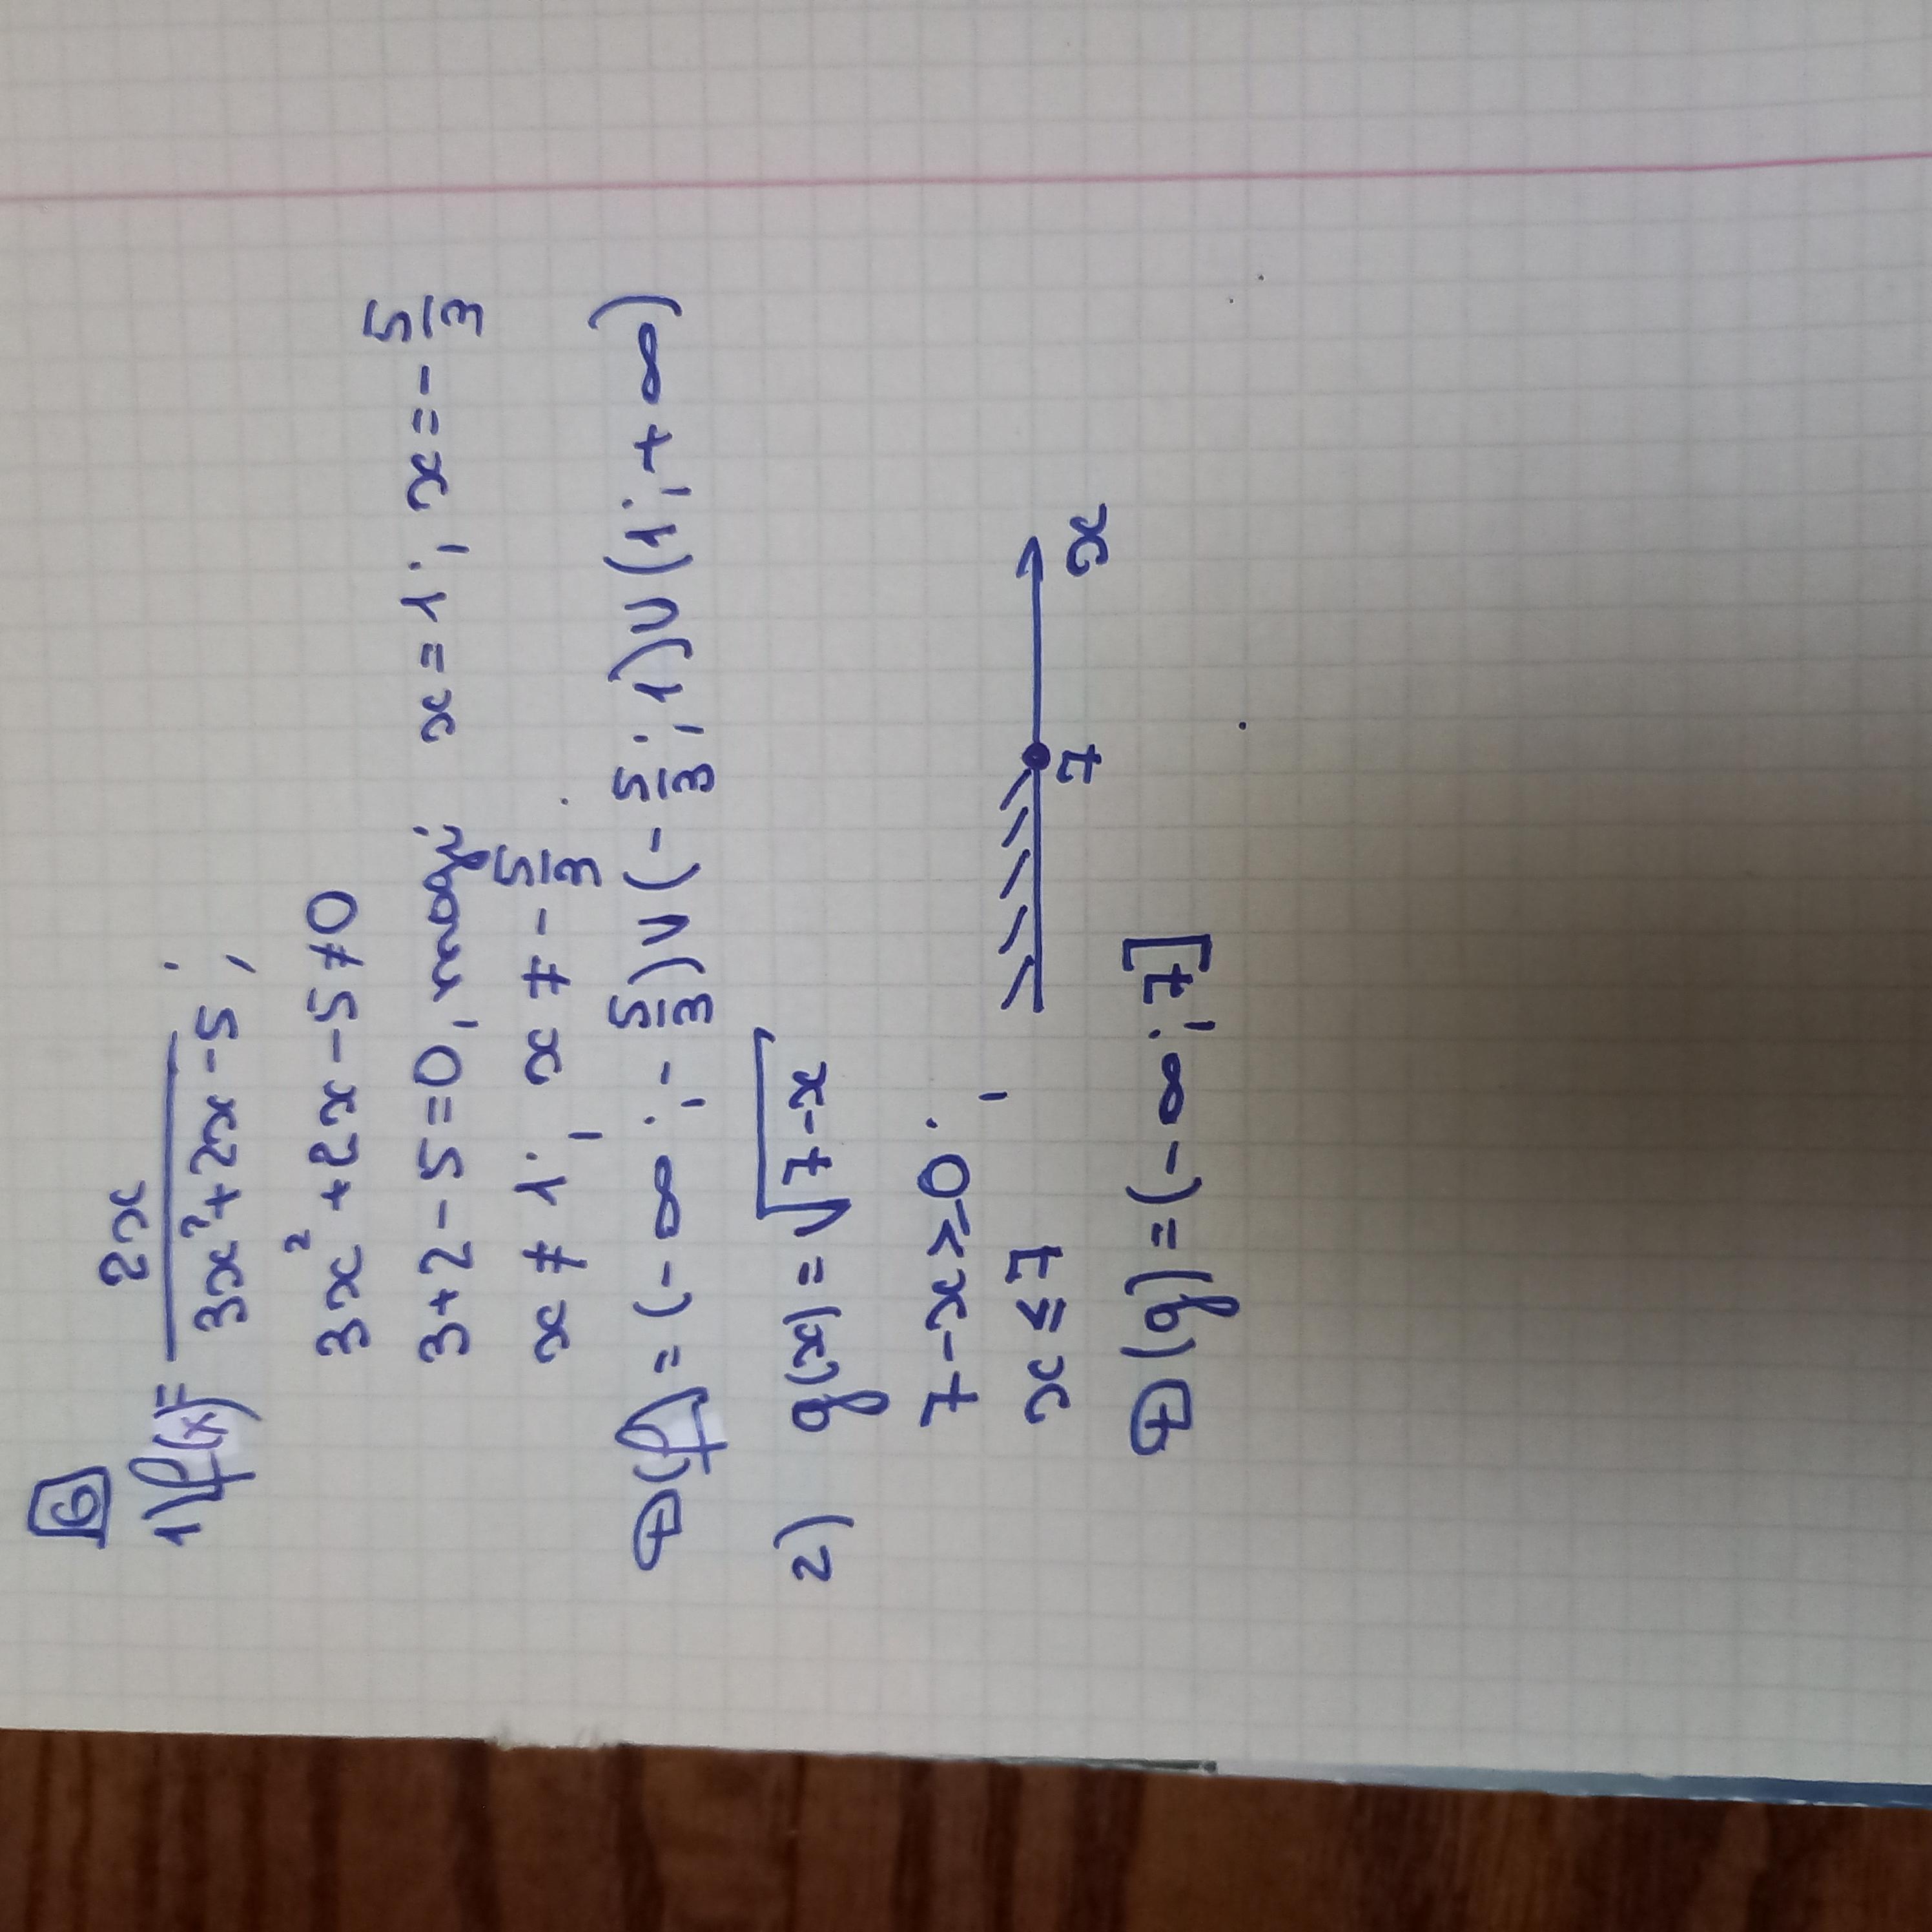 6
1) f(x) = 2x / (3x² + 2x - 5) ;
3x² + 2x - 5 ≠ 0
3 + 2 - 5 = 0, тоді: x = 1; x = - 5/3
x ≠ 1; x ≠ - 5/3.
D(f) = (-∞; - 5/3) ∪ (- 5/3; 1) ∪ (1; +∞)
2) g(x) = √(7-x)
7 - x ≥ 0;
x ≤ 7
7 x
D(g) = (-∞; 7]